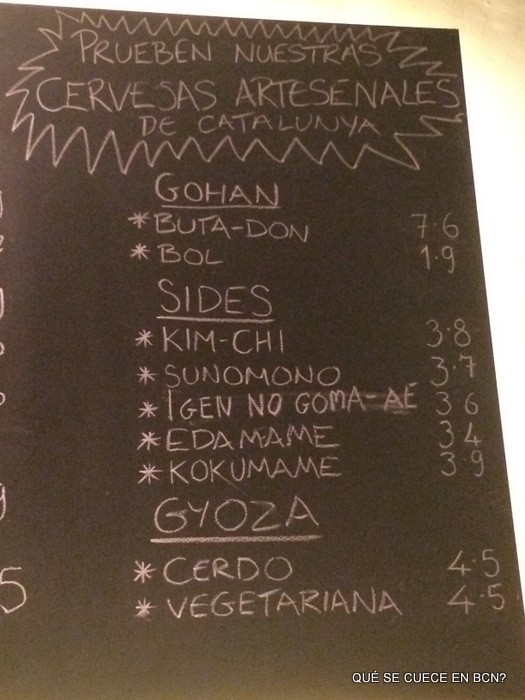 PRUEBEN NUESTRAS
CERVESAS ARTESENALES
DE CATALUNYA
GOHAN
* BUTA-DON 7.6
* BOL 1.9
SIDES
* KIM-CHI 3.8
* SUNOMONO 3.7
* IGEN NO GOMA-AÉ 3 6
* EDAMAME 3.4
* KOKUMAME 3.9
GYOZA
* CERDO 4.5
* VEGETARIANA 4.5
5
QUÉ SE CUECE EN BCN?